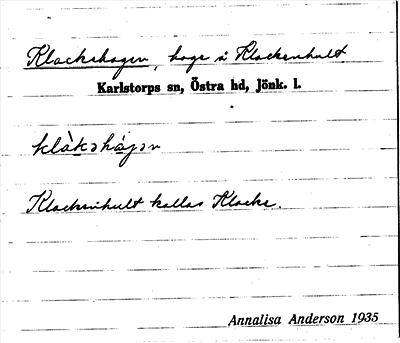 Klackehagen, hage å Klackenhult
Karlstorps sn, Östra hd, Jönk. l.
klàkəhá̱gən
Klackenhult kallas Klacke.
Annalisa Anderson 1935